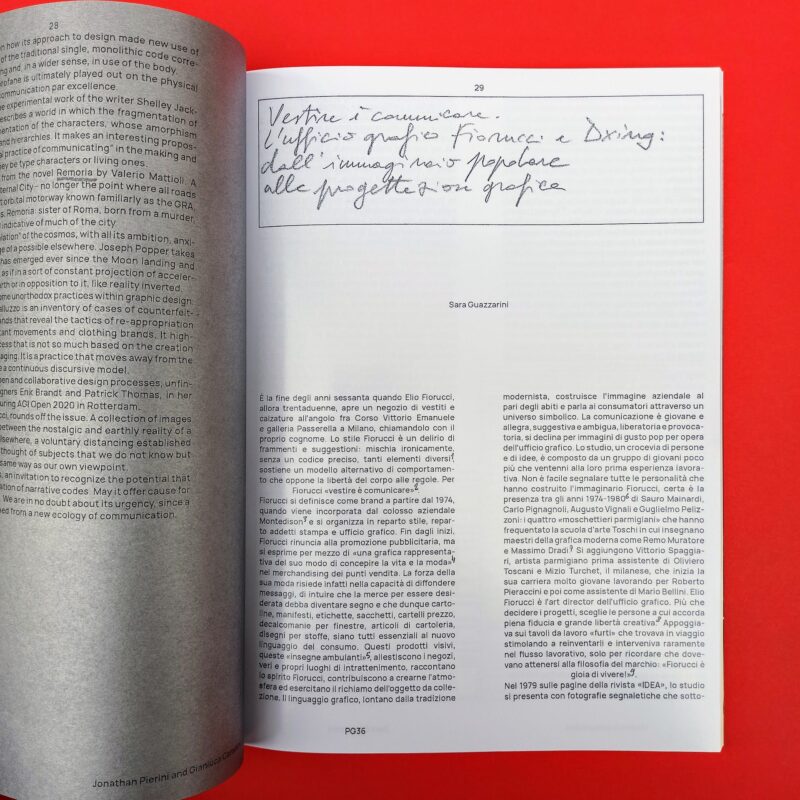 28
n how its approach to design made new use of
of the traditional single, monolithic code corre-
ing and, in a wider sense, in use of the body.
rofane is ultimately played out on the physical
ommunication par excellence.
e experimental work of the writer Shelley Jack-
escribes a world in which the fragmentation of
mentation of the characters, whose amorphism
and hierarchies. It makes an interesting propos-
l practice of communicating" in the making and
ey be type characters or living ones.
from the novel Remoria by Valerio Mattioli. A
ternal City – no longer the point where all roads
orbital motorway known familiarly as the GRA,
s. Remoria: sister of Roma, born from a murder,
indicative of much of the city.
lation" of the cosmos, with all its ambition, anxi-
ge of a possible elsewhere. Joseph Popper takes
has emerged ever since the Moon landing and
as if in a sort of constant projection of acceler-
arth or in opposition to it, like reality inverted.
ome unorthodox practices within graphic design.
alluzzo is an inventory of cases of counterfeit-
ands that reveal the tactics of re-appropriation
tant movements and clothing brands. It high-
cess that is not so much based on the creation
aging. It is a practice that moves away from the
e a continuous discursive model.
pen and collaborative design processes, unfin-
gners Erik Brandt and Patrick Thomas, in her
uring AGI Open 2020 in Rotterdam.
cci, rounds off the issue. A collection of images
between the nostalgic and earthly reality of a
elsewhere, a voluntary distancing established
thought of subjects that we do not know but
same way as our own viewpoint.
s, an invitation to recognize the potential that
ation of narrative codes. May it offer cause for
We are in no doubt about its urgency, since a
ed from a new ecology of communication.
Jonathan Pierini and Gianluca
29
Vestire è comunicare.
L'ufficio grafico Fiorucci e Dxing:
dall'immaginaio popolare
alla progettazione grafica
Sara Guazzarini
È la fine degli anni sessanta quando Elio Fiorucci,
allora trentaduenne, apre un negozio di vestiti e
calzature all'angolo fra Corso Vittorio Emanuele
e galleria Passerella a Milano, chiamandolo con il
proprio cognome. Lo stile Fiorucci è un delirio di
frammenti e suggestioni: mischia ironicamente,
senza un codice preciso, tanti elementi diversi¹,
sostiene un modello alternativo di comportamen-
to che oppone la libertà del corpo alle regole. Per
Fiorucci «vestire è comunicare»².
Fiorucci si definisce come brand a partire dal 1974,
quando viene incorporata dal colosso aziendale
Montedison³ e si organizza in reparto stile, repar-
to addetti stampa e ufficio grafico. Fin dagli inizi,
Fiorucci rinuncia alla promozione pubblicitaria, ma
si esprime per mezzo di «una grafica rappresenta-
tiva del suo modo di concepire la vita e la moda»⁴
nel merchandising dei punti vendita. La forza della
sua moda risiede infatti nella capacità di diffondere
messaggi, di intuire che la merce per essere desi-
derata debba diventare segno e che dunque carto-
line, manifesti, etichette, sacchetti, cartelli prezzo,
decalcomanie per finestre, articoli di cartoleria,
disegni per stoffe, siano tutti essenziali al nuovo
linguaggio del consumo. Questi prodotti visivi,
queste «insegne ambulanti»⁵, allestiscono i negozi,
veri e propri luoghi di intrattenimento, raccontano
lo spirito Fiorucci, contribuiscono a crearne l'atmo-
sfera ed esercitano il richiamo dell'oggetto da colle-
zione. Il linguaggio grafico, lontano dalla tradizione
modernista, costruisce l'immagine aziendale al
pari degli abiti e parla ai consumatori attraverso un
universo simbolico. La comunicazione è giovane e
allegra, suggestiva e ambigua, liberatoria e provoca-
toria, si declina per immagini di gusto pop per opera
dell'ufficio grafico. Lo studio, un crocevia di persone
e di idee, è composto da un gruppo di giovani poco
più che ventenni alla loro prima esperienza lavora-
tiva. Non è facile segnalare tutte le personalità che
hanno costruito l'immaginario Fiorucci, certa è la
presenza tra gli anni 1974-1980⁶ di Sauro Mainardi,
Carlo Pignagnoli, Augusto Vignali e Guglielmo Peliz-
zoni: i quattro «moschettieri parmigiani» che hanno
frequentato la scuola d'arte Toschi in cui insegnano
maestri della grafica moderna come Remo Muratore
e Massimo Dradi⁷. Si aggiungono Vittorio Spaggia-
ri, artista parmigiano prima assistente di Oliviero
Toscani e Mizio Turchet, il milanese, che inizia la
sua carriera molto giovane lavorando per Roberto
Pieraccini e poi come assistente di Mario Bellini. Elio
Fiorucci è l'art director dell'ufficio grafico. Più che
decidere i progetti, sceglie le persone a cui accorda
piena fiducia e grande libertà creativa⁸. Appoggia-
va sui tavoli da lavoro «furti» che trovava in viaggio
stimolando a reinventarli e interveniva raramente
nel flusso lavorativo, solo per ricordare che dove-
vano attenersi alla filosofia del marchio: «Fiorucci è
gioia di vivere!»⁹.
Nel 1979 sulle pagine della rivista «IDEA», lo studio
si presenta con fotografie segnaletiche che sotto-
PG36